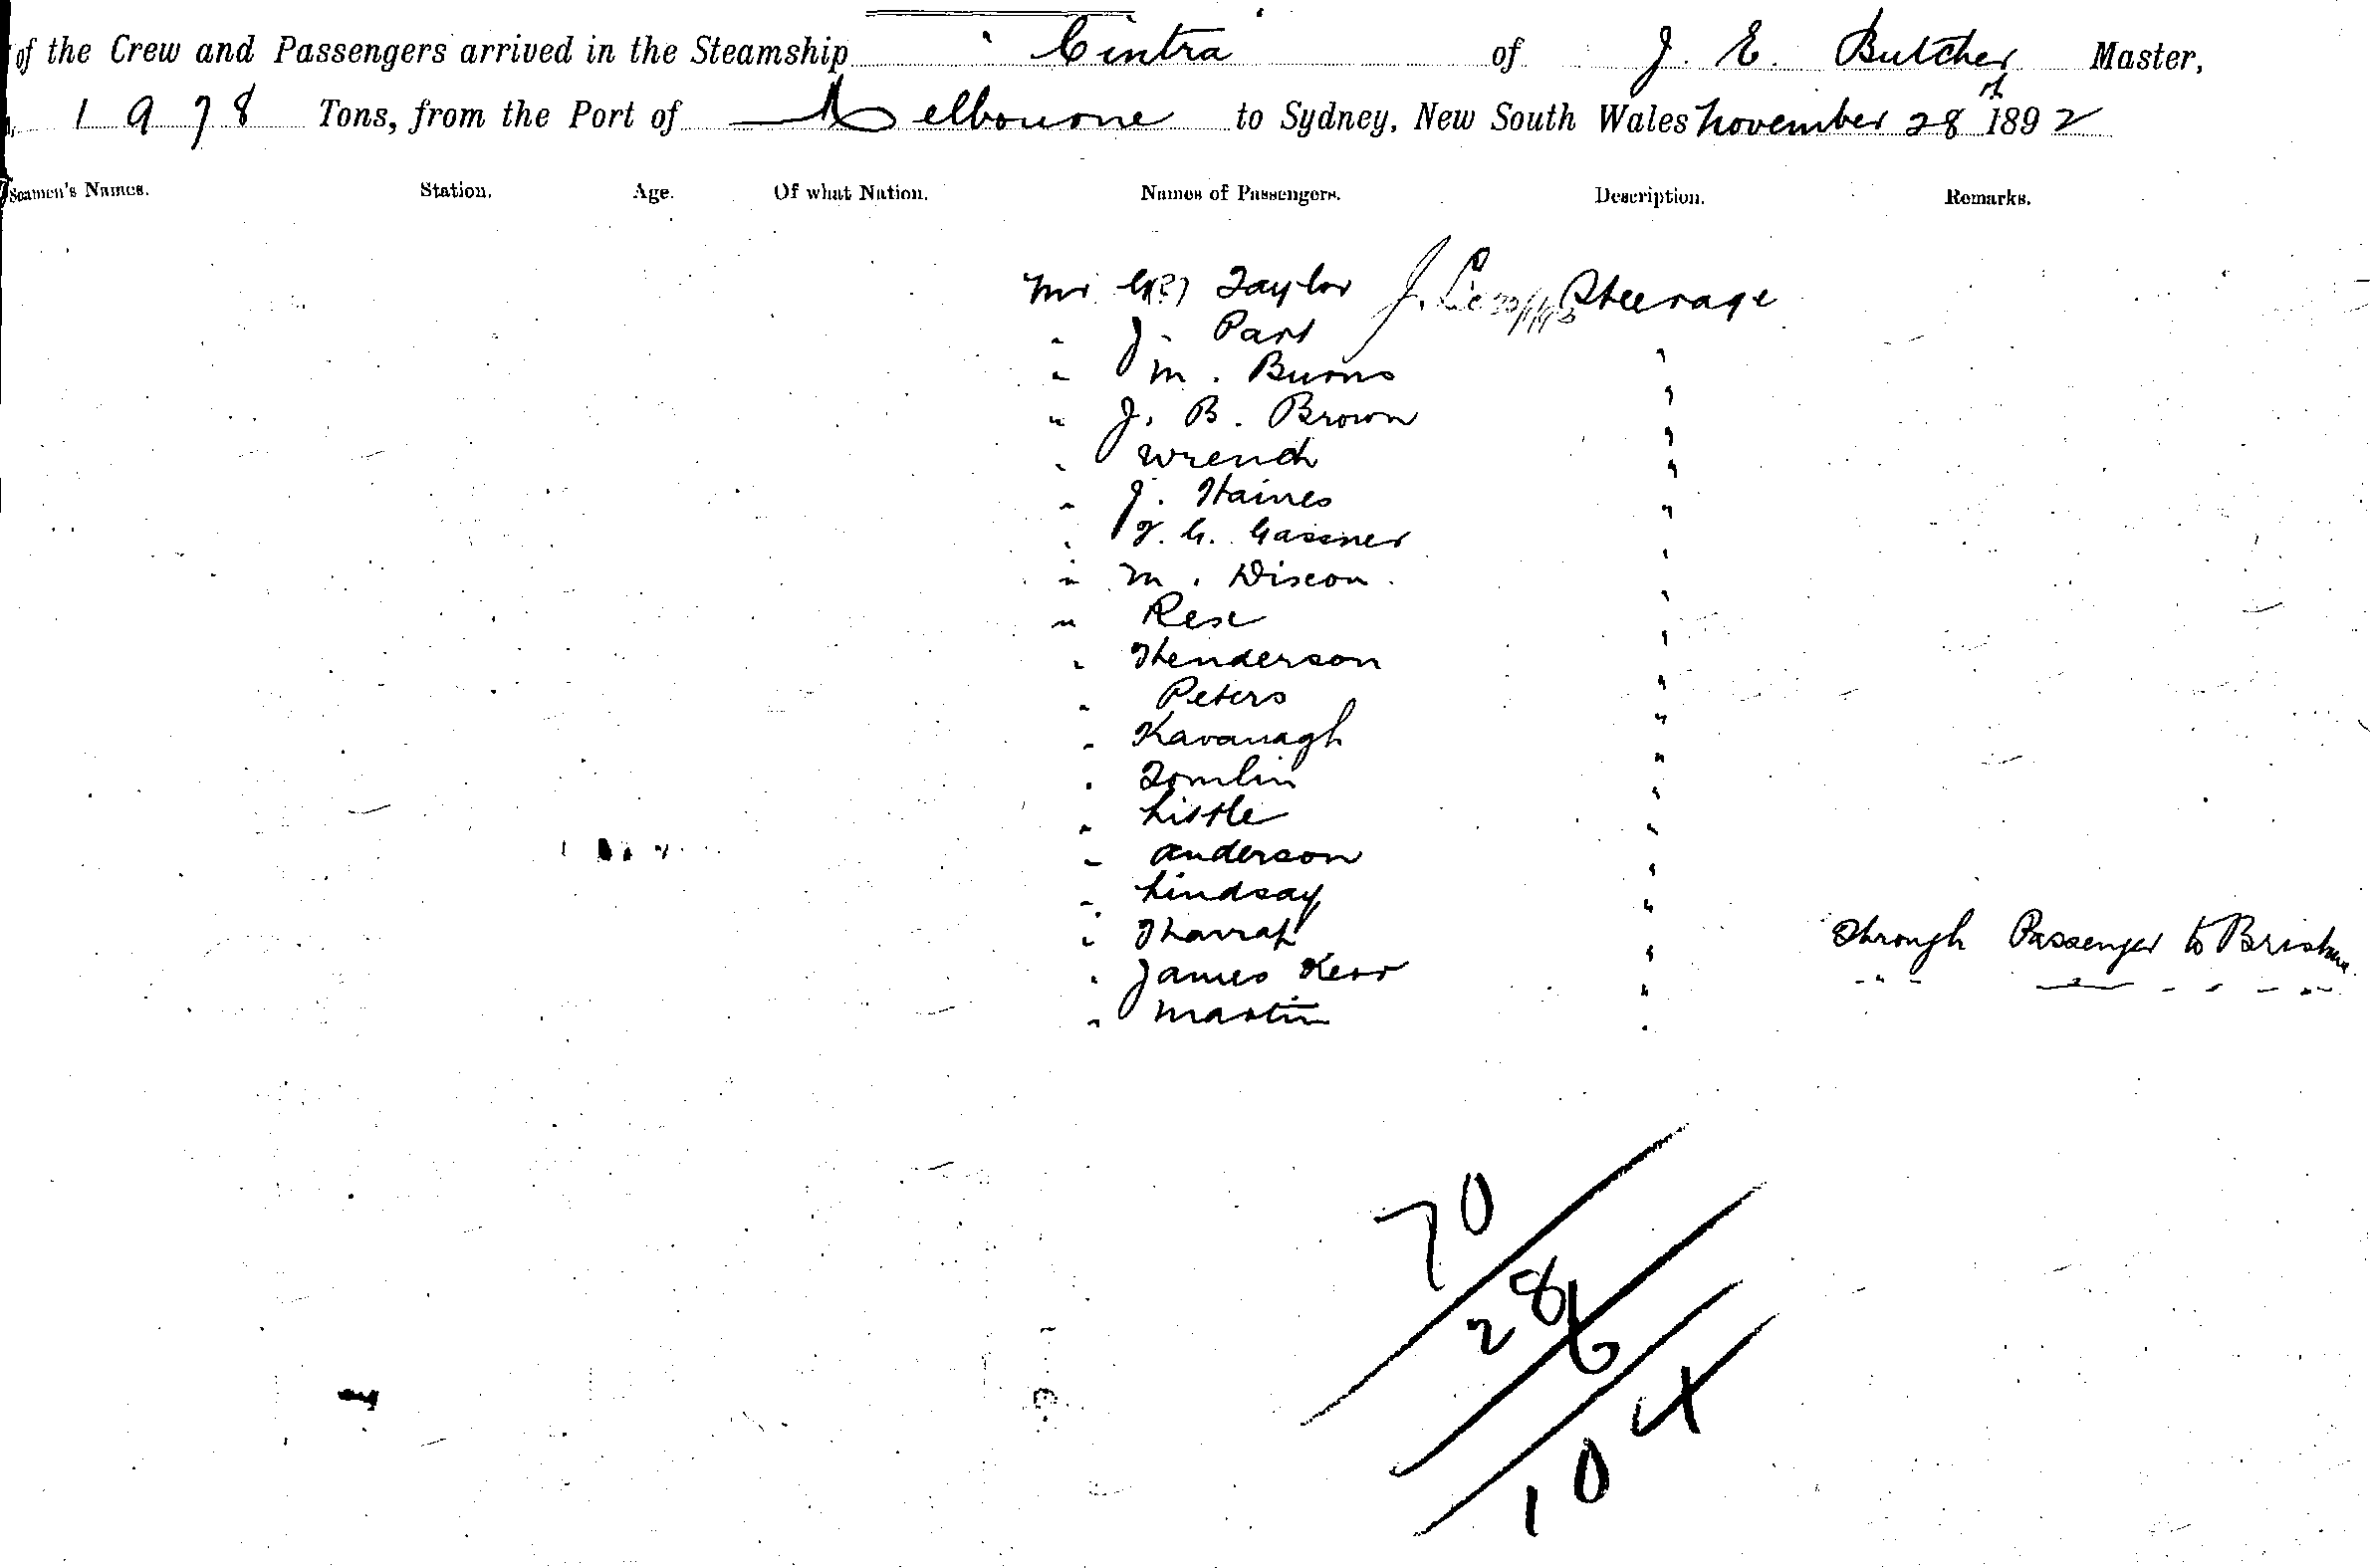 of the Crew and Passengers arrived in the Steamship Cintra of J. E. Butcher Master,
1978 Tons, from the Port of Melbourne to Sydney, New South Wales November 28 1892
Seamen's Names. Station. Age. Of what Nation. Names of Passengers. Description. Remarks.
Mr Taylor Steerage
" J. Part "
" M. Burns "
" J. B. Brown "
" Wrench "
" J. Haines "
" G. Gassner "
" M. Discon "
" Rese "
" Henderson "
" Peters "
" Kavanagh "
" Tomlin "
" Little "
" Anderson "
" Lindsay "
" Through Passenger to Brisbane
" James Kerr "
" Martin "
70
28
6
104